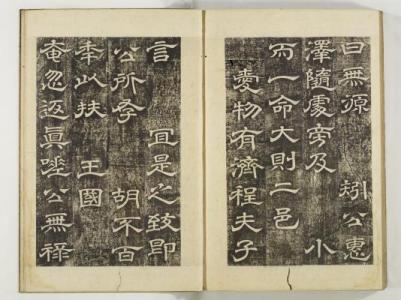 曰無源　矧公惠
澤隨處旁及　小
而一命大則二邑
愛物有濟程夫子
言　宜是之致即
公所學　胡不百
秊以扶　王國
奄忽返眞嗟公無祿